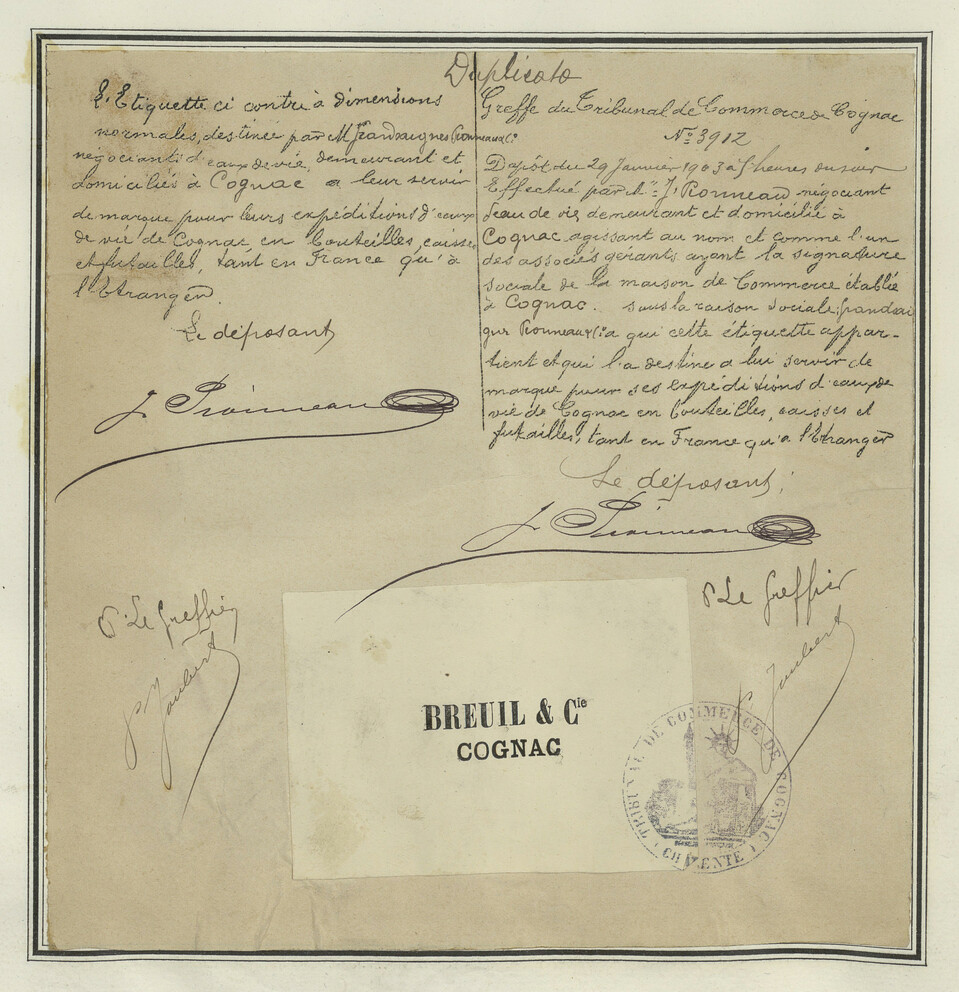 Duplicata
L'Etiquette ci contre à dimensions
normales, destinée par M Grandsaignes Pronneau & Cie
négociant d'eaux de vie, demeurant et
domiciliés à Cognac a leur servir
de marque pour leurs expéditions d'eaux
de vie de Cognac en bouteilles, caisses
et futailles, tant en France qu'à
l'Etranger.
Le déposant
J. Pronneau
Greffe du Tribunal de Commerce de Cognac
No 3912
Dépôt du 29 Janvier 1903 à 5 heures du soir
Effectué par Mr J. Pronneau négociant
d'eau de vie, demeurant et domicilié à
Cognac agissant au nom et comme l'un
des associés gérants ayant la signature
sociale de la maison de Commerce établie
à Cognac. sous la raison sociale, Grandsai
gnes Pronneau & Cie a qui cette étiquette appar-
tient et qui l'a destine a lui servir de
marque pour ses expéditions d'eaux de
vie de Cognac en bouteilles, caisses et
futailles, tant en France qu'a l'Etranger
Le déposant,
J. Pronneau
Pr Le Greffier
P Joubert
Pr Le Greffier
P Joubert
BREUIL & Cie
COGNAC
TRIBUNAL DE COMMERCE DE COGNAC
CHARENTE